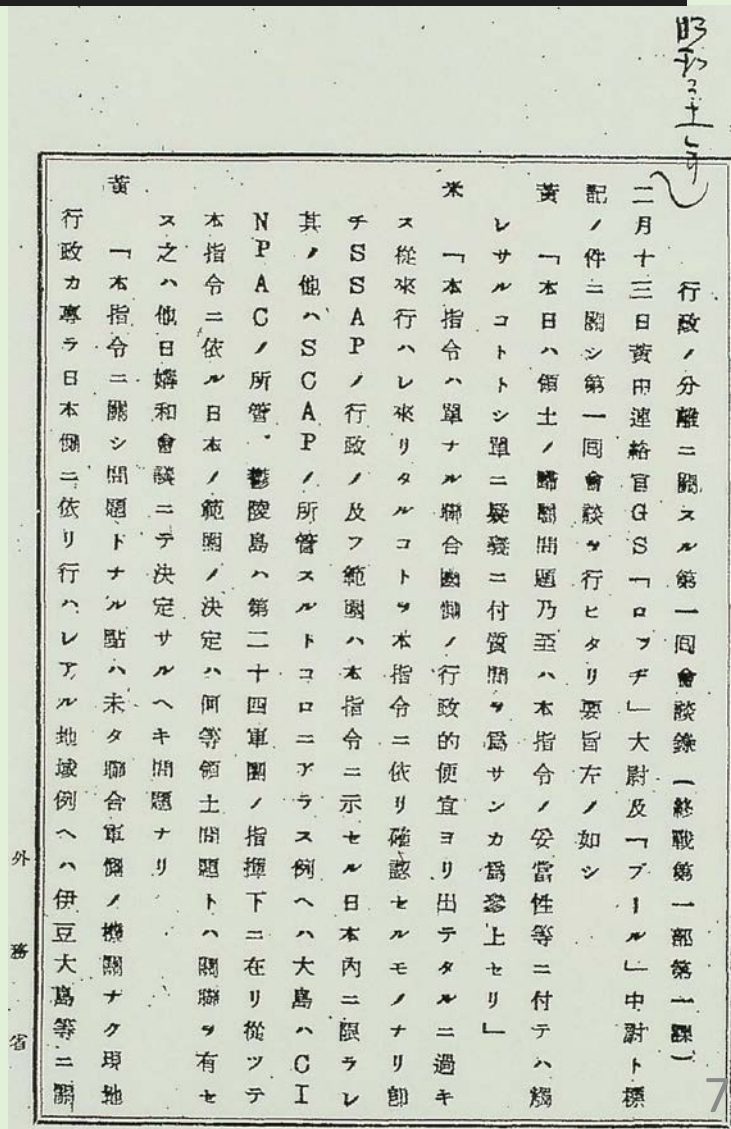 昭和二十一年
行政ノ分離ニ關スル第一囘會談錄(終戰第一部第一課)
二月十三日黃田連絡官GS「ロッヂ」大尉及「プール」中尉ト標
記ノ件ニ關シ第一囘會談ヲ行ヒタリ要旨左ノ如シ
黃「本日ハ領土ノ歸屬問題乃至ハ本指令ノ妥當性等ニ付テハ觸
レサルコトトシ單ニ疑義ニ付質問ヲ爲サンカ爲參上セリ」
米「本指令ハ單ナル聯合國側ノ行政的便宜ヨリ出テタルニ過キ
ス從來行ハレ來リタルコトヲ本指令ニ依リ確認セルモノナリ卽
チSSAPノ行政ノ及フ範圍ハ本指令ニ示セル日本內ニ限ラレ
其ノ他ハSCAPノ所管スルトコロニアラス例ヘハ大島ハCI
NPACノ所管、鬱陵島ハ第二十四軍團ノ指揮下ニ在リ從ツテ
本指令ニ依ル日本ノ範圍ノ決定ハ何等領土問題トハ關聯ヲ有セ
ス之ハ他日媾和會議ニテ決定サルヘキ問題ナリ
黃「本指令ニ關シ問題トナル點ハ未タ聯合軍側ノ機關ナク現地
行政カ專ラ日本側ニ依リ行ハレアル地域例ヘハ伊豆大島等ニ關
外務省
7